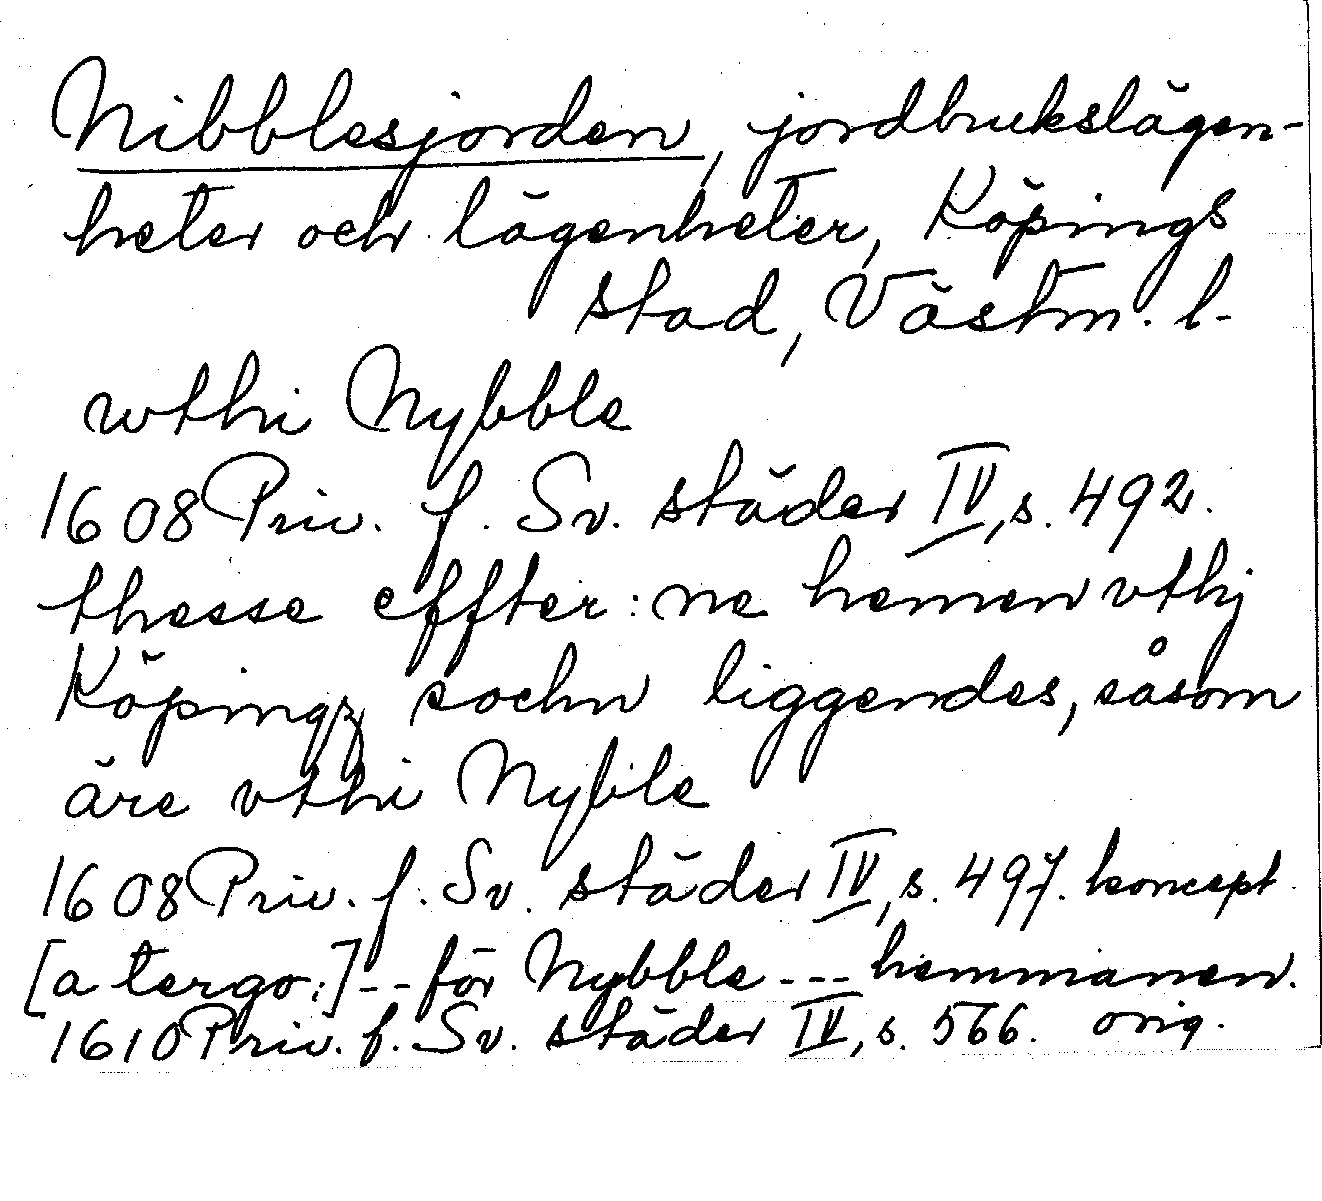 Nibblesjorden, jordbrukslägen-
heter och lägenheter, Köpings
stad, Västm. l.
wthi Nybble
1608 Priv. f. Sv. städer IV, s. 492.
thesse effter:ne hemen vthj
Köpingz sochn liggendes, såsom
äre vthi Nyble
1608 Priv. f. Sv. städer IV, s. 497. koncept.
[a tergo:] -- för Nybble --- hemmanen.
1610 Priv. f. Sv. städer IV, s. 566. orig.